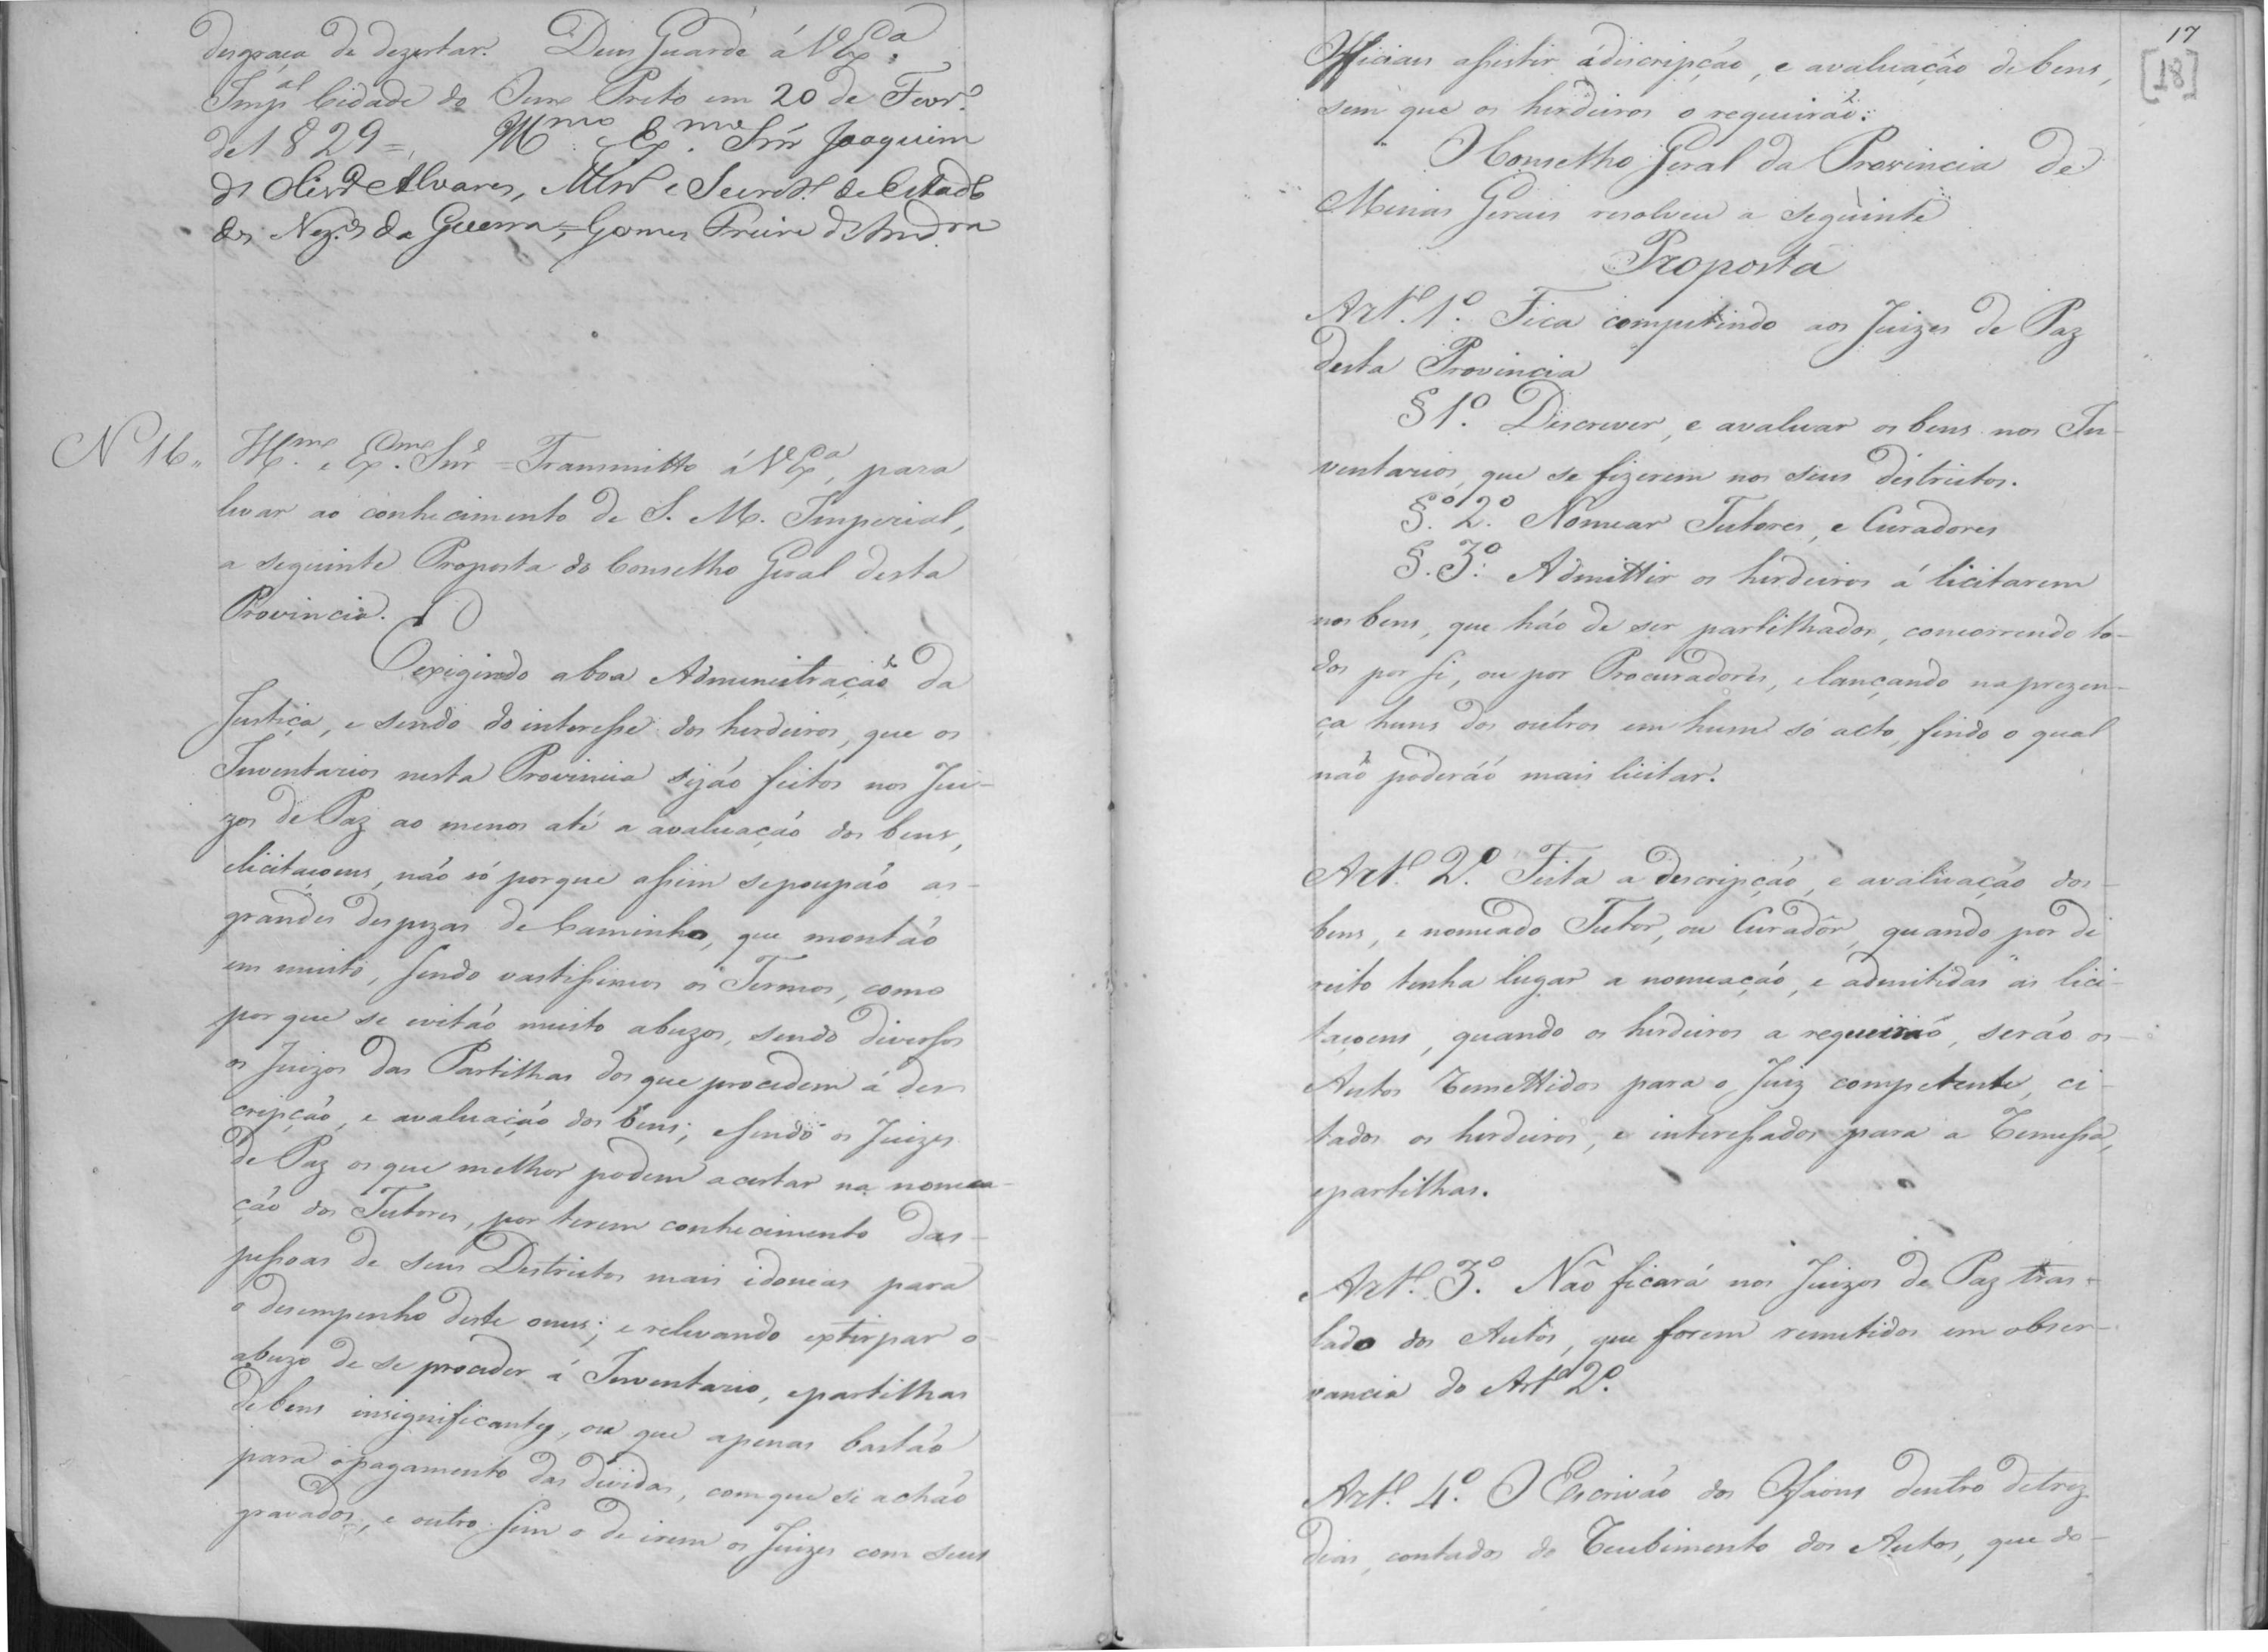 desgraça de dezertar. Deus Guarde á V Ex.ª
Imp.al Cidade do Ouro Preto em 20 de Fevr.º
de 1829 = Ill.mo e Ex.mo Snr Joaquim
de Olivr.ª Alvares, Minº e Secretº de Estado
dos Neg.os da Guerra = Gomes Freire d'Andrª
Nº 16,, Ill.mo e Ex.mo Snr = Transmitto á V Ex.ª, para
levar ao conhecimento de S. M. Imperial,
a seguinte Proposta do Conselho Geral desta
Provincia.
Exigindo a boa Administração da
Justiça, e sendo do interesse dos herdeiros, que os
Inventarios nesta Provincia sejão feitos nos Jui-
zos de Paz ao menos até a avaluação dos bens,
e licitaçoens, não só porque assim se poupão as
grandes despezas de Caminho, que montão
em muito, sendo vastissimos os Termos, como
por que se evitão muito abuzos, sendo diversos
os Juizos das Partilhas dos que procedem á des-
cripção, e avaluação dos bens; e sendo os Juizes
de Paz os que melhor podem acertar na nomea-
ção dos Tutores, por terem conhecimento das
pessoas de seus Destrictos mais idoneas para
o desempenho deste onus; e relevando extirpar o
abuzo de se proceder á Inventario, e partilhas
de bens insignificantes, ou que apenas bastão
para o pagamento das dividas, com que se achão
gravados, e outro sim o de irem os Juizes com seus
17
[18]
Officiaes assistir á discripção, e avaluação de bens,
sem que os herdeiros o requeirão.
O Conselho Geral da Provincia de
Minas Gerais resolveu a seguinte
Proposta
Artº 1º. Fica competindo aos Juizes de Paz
desta Provincia
§ 1º. Discrever, e avaluar os bens nos In-
ventarios, que se fizerem nos seus districtos.
§.º 2º. Nomear Tutores, e Curadores
§. 3º. Admittir os herdeiros á licitarem
nos bens, que hão de ser partilhados, concorrendo to-
dos por si, ou por Procuradores, e lançando na prezen-
ça huns dos outros em hum só acto, findo o qual
não poderáõ mais licitar.
Artº 2º. Feita a descripção, e avaluação dos
bens, e nomeado Tutor, ou Curador, quando por di
reito tenha lugar a nomeação, e admitidas as lici-
taçoens, quando os herdeiros a requeirão, serão os
Autos remettidos para o Juiz competente, ci-
tados os herdeiros, e interessados para a remessa,
e partilhas.
Artº. 3º. Não ficará nos Juizos de Paz tras-
lado dos Autos, que forem remetidos em obser-
vancia do Artº 2º.
Artº. 4º. O Escrivão dos Orfaons dentro de trez
dias, contados do recebimento dos Autos, que do-